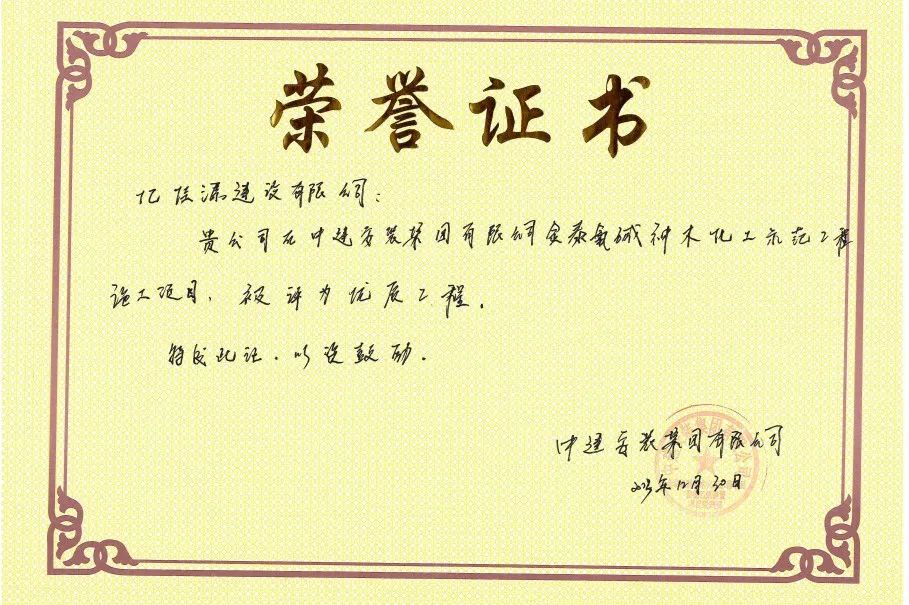 荣誉证书
亿信源建设有限公司:
贵公司在中建安装集团有限公司金泰氯碱神木化工示范工程
施工项目，被评为优质工程。
特发此证，以资鼓励。
中建安装集团有限公司
2023年12月30日